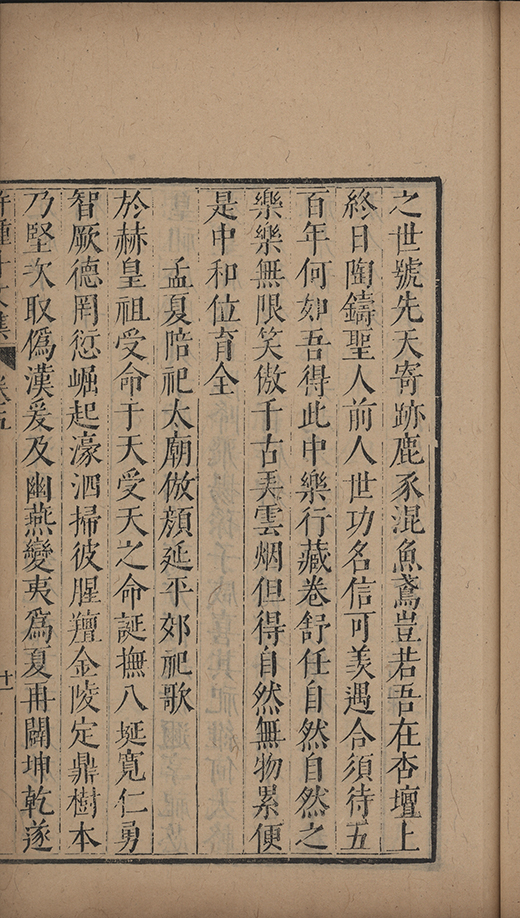 之世號先天寄跡鹿豕混魚鳶豈若吾在杏壇上
終日陶鑄聖人前人世功名信可羨遇合須待五
百年何如吾得此中樂行藏卷舒任自然自然之
樂樂無限笑傲千古弄雲烟但得自然無物累便
是中和位育全
孟夏陪祀太廟倣顔延平郊祀歌
於赫皇祖受命于天受天之命誕撫八埏寬仁勇
智厥德罔愆崛起濠泗掃彼腥羶金陵定鼎樹本
乃堅次取僞漢爰及幽燕變夷爲夏再闢坤乾遂
文集
卷五
十一